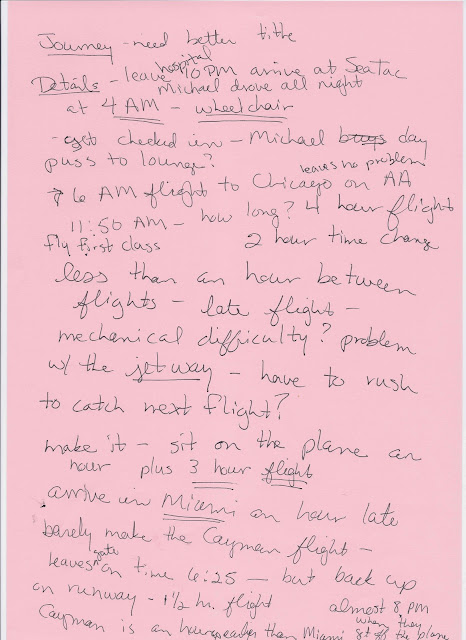 Journey - need better title
Details - leave hospital 10 PM arrive at SeaTac
Michael drove all night
at 4 AM - wheelchair
- get checked in - Michael buys day
pass to lounge?
leaves no problem
→ 6 AM flight to Chicago on AA
11:50 AM - how long? 4 hour flight
fly first class 2 hour time change
less than an hour between
flights - late flight -
mechanical difficulty? problem
w/ the jetway - have to rush
to catch next flight?
make it - sit on the plane an
hour plus 3 hour flight
arrive in Miami an hour late
barely make the Cayman flight -
leaves gate on time 6:25 - but back up
on runway - 1 1/2 hr. flight almost 8 PM
when they
Cayman is an hour earlier than Miami get off the plane